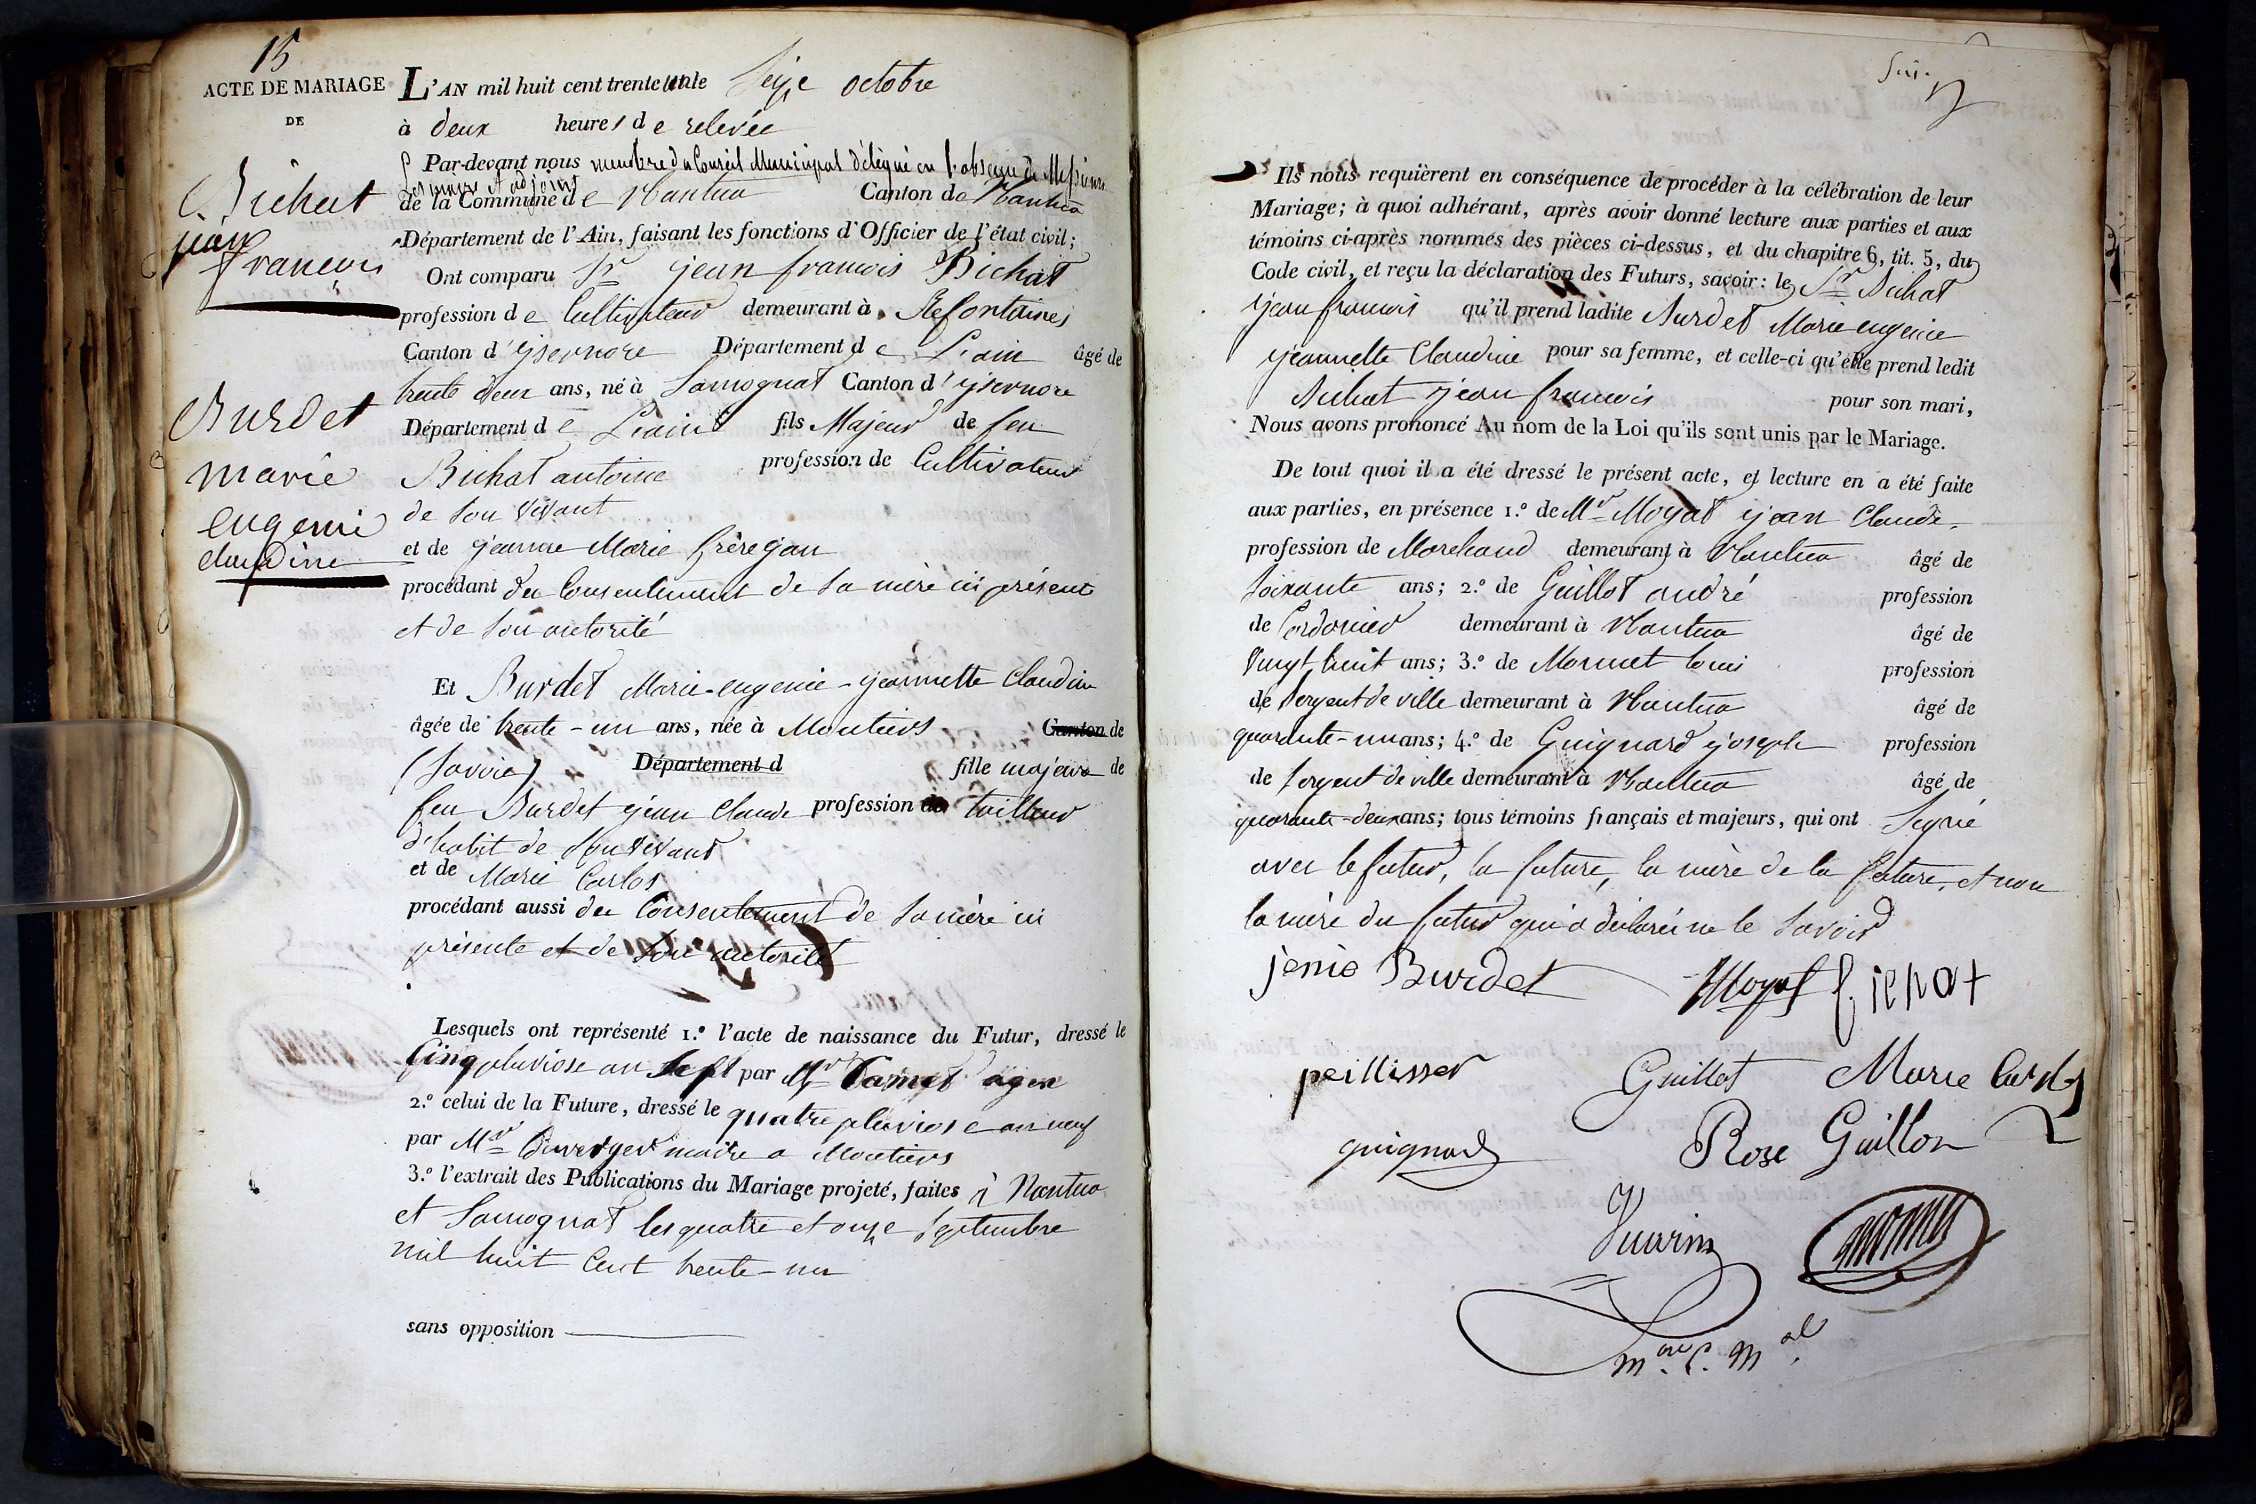 15
ACTE DE MARIAGE
DE
Bichat
jean
françois
Burdet
marie
eugenie
claudine
L'AN mil huit cent trente un le Seize octobre
à deux heures de relevée
Par-devant nous membre du Conseil Municipal délégué en l'absence de Messieurs
les maire et adjoint
de la Commune de Nantua Canton de Nantua
Département de l'Ain, faisant les fonctions d'Officier de l'état civil;
Ont comparu Sr jean francois Bichat
profession de Cultivateur demeurant à
Canton d'ysernore Département de L'ain âgé de
trente deux ans, né à Samognat Canton d'ysernore
Département de L'ain fils Majeur de feu
Bichat antoine profession de Cultivateur
de Son vivant
et de jeanne Marie frerejan
procédant du Consentement de Sa mère ici présente
et de Son autorité
Et Burdet Marie-eugenie-jeannette Claudine
âgée de trente-un ans, née à Moutiers Canton de
(Savoie) Département d fille majeure de
feu Burdet jean Claude profession de tailleur
d'habit de Son vivant
et de Marie Carlos
procédant aussi du Consentement de Sa mère ici
présente et de Son autorité
Lesquels ont représenté 1.º l'acte de naissance du Futur, dressé le
Cinq pluviose an Sept par Mr Tamet agen
2.º celui de la Future, dressé le quatre pluviose an neuf
par Mr Duverger maire a Moutiers
3.º l'extrait des Publications du Mariage projeté, faites à Nantua
et Samognat les quatre et onze Septembre
mil huit Cent trente-un
sans opposition
Ils nous requièrent en conséquence de procéder à la célébration de leur
Mariage; à quoi adhérant, après avoir donné lecture aux parties et aux
témoins ci-après nommés des pièces ci-dessus, et du chapitre 6, tit. 5, du
Code civil, et reçu la déclaration des Futurs, savoir: le Sr Bichat
jean francois qu'il prend ladite Burdet Marie eugenie
jeannette Claudine pour sa femme, et celle-ci qu'elle prend ledit
Bichat jean francois pour son mari,
Nous avons prononcé Au nom de la Loi qu'ils sont unis par le Mariage.
De tout quoi il a été dressé le présent acte, et lecture en a été faite
aux parties, en présence 1.º de Mr Moyat jean Claude
profession de Marchand demeurant à Nantua âgé de
Soixante ans; 2.º de Guillot andré profession
de Cordonier demeurant à Nantua âgé de
Vingt huit ans; 3.º de Monnet louis profession
de Sergent de ville demeurant à Nantua âgé de
quarante-un ans; 4.º de Guignard joseph profession
de Sergent de ville demeurant à Nantua âgé de
quarante-deux ans; tous témoins français et majeurs, qui ont Signé
avec le futur, la future, la mère de la future, et non
la mère du futur qui a déclaré ne le Savoir
jenie Burdet Moyat
peillisser Guillot Marie Carlos
guignard Rose Guillon